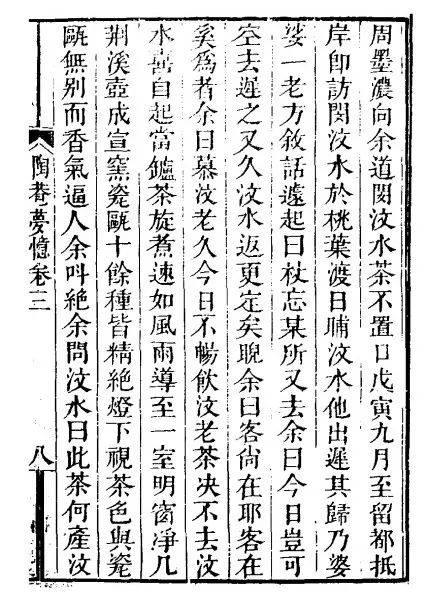 周墨濃向余道閔汶水茶不置口戊寅九月至留都抵
岸卽訪閔汶水於桃葉渡日晡汶水他出遲其歸乃婆
娑一老方敘話遽起曰杖忘某所又去余曰今日豈可
空去遲之又久汶水返更定矣睨余曰客尙在耶客在
奚爲者余曰慕汶老久今日不暢飲汶老茶决不去汶
水喜自起當鑪茶旋煮速如風雨導至一室明窗凈几
荆溪壺成宣窯瓷甌十餘種皆精絶燈下視茶色與瓷
甌無别而香氣逼人余叫絶余問汶水曰此茶何產汶
陶菴夢憶卷三
八